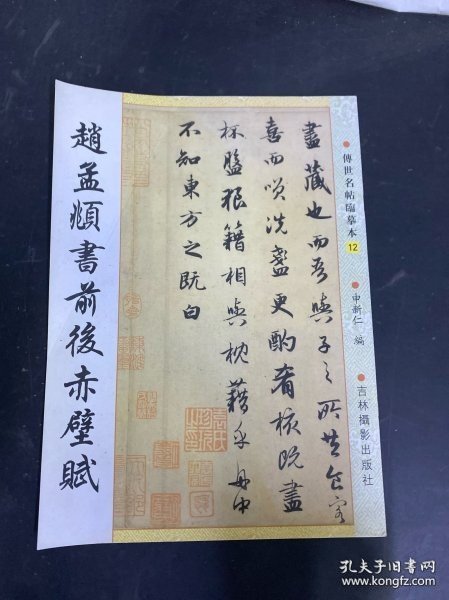 趙孟頫書前後赤壁賦
盡藏也而吾與子之所共食客
喜而笑洗盞更酌肴核既盡
杯盤狼籍相與枕藉乎舟中
不知東方之既白
傳世名帖臨摹本
12
申新仁 編
吉林攝影出版社
孔夫子旧书网
www.kongfz.com